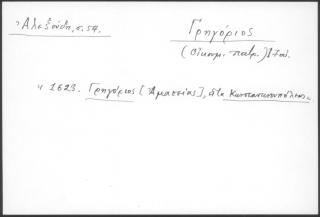 Ἀλεξούδη, σ. 54.
Γρηγόριος
(Οἰκουμ. πατρ.)
1623. Γρηγόριος [Ἀμασείας], εἶτα Κωνσταντινουπόλεως.